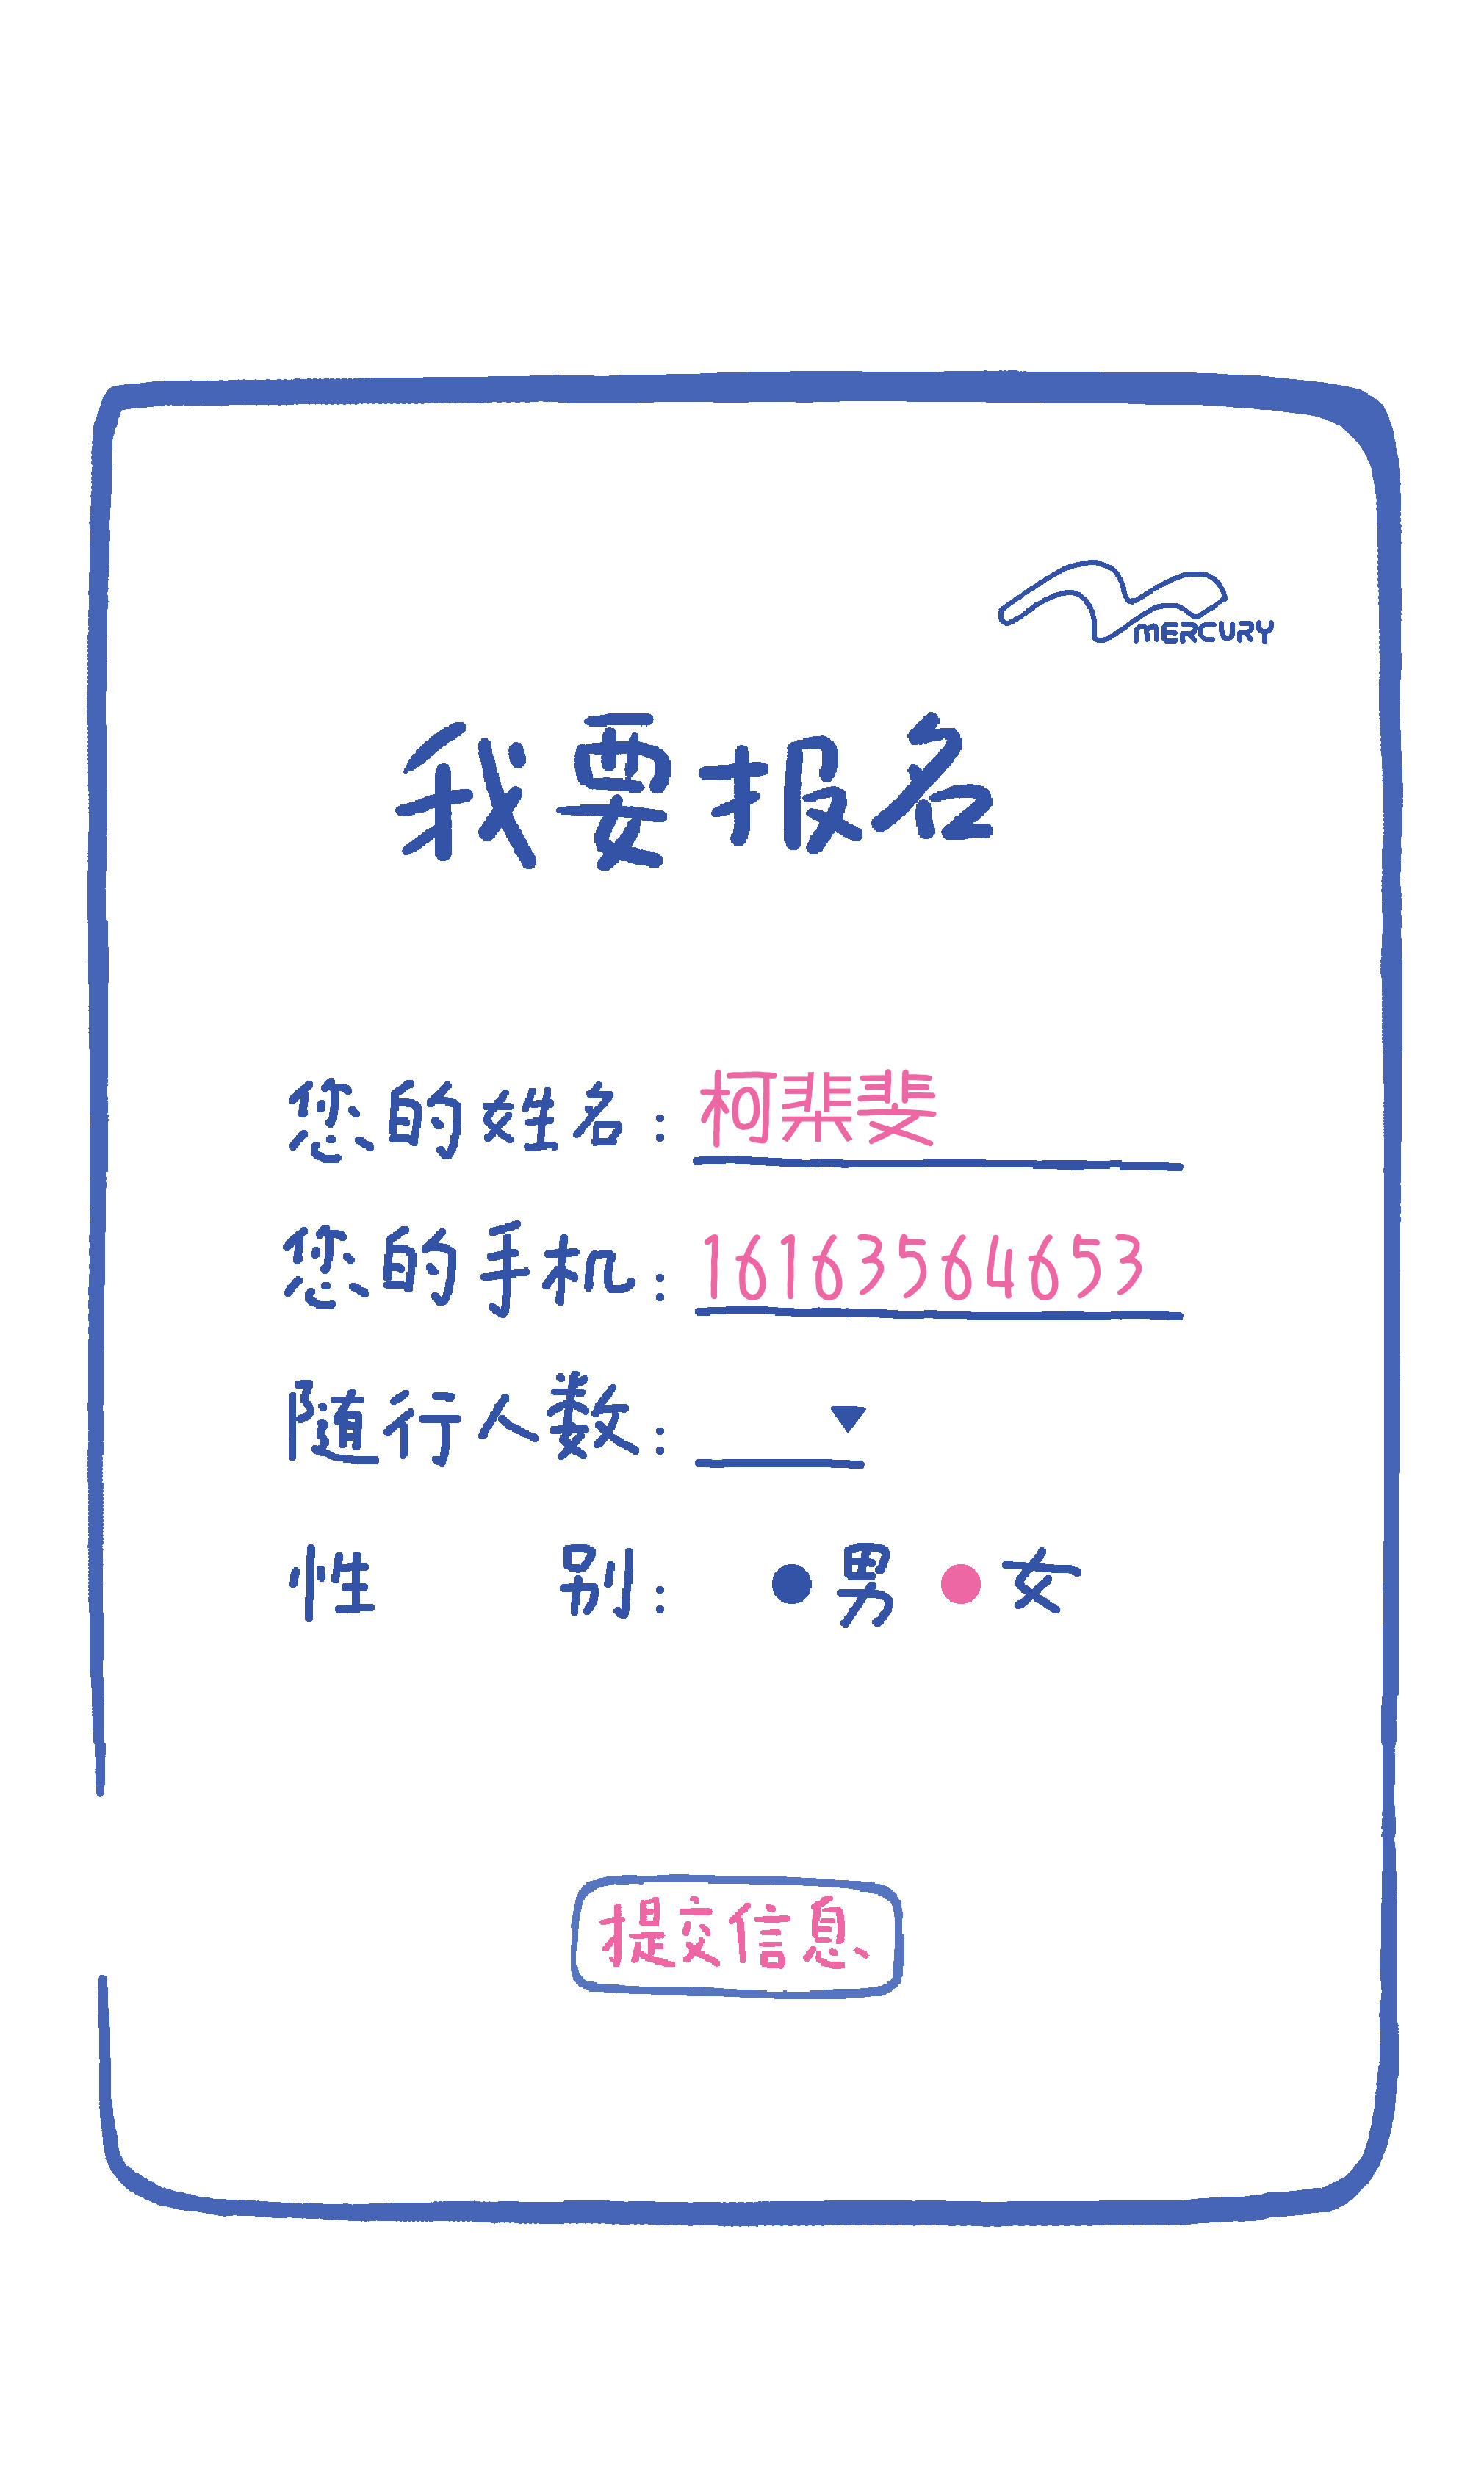 MERCURY
我要报名
您的姓名：柯棐斐
您的手机：16163564653
随行人数：
性别：男 女
提交信息